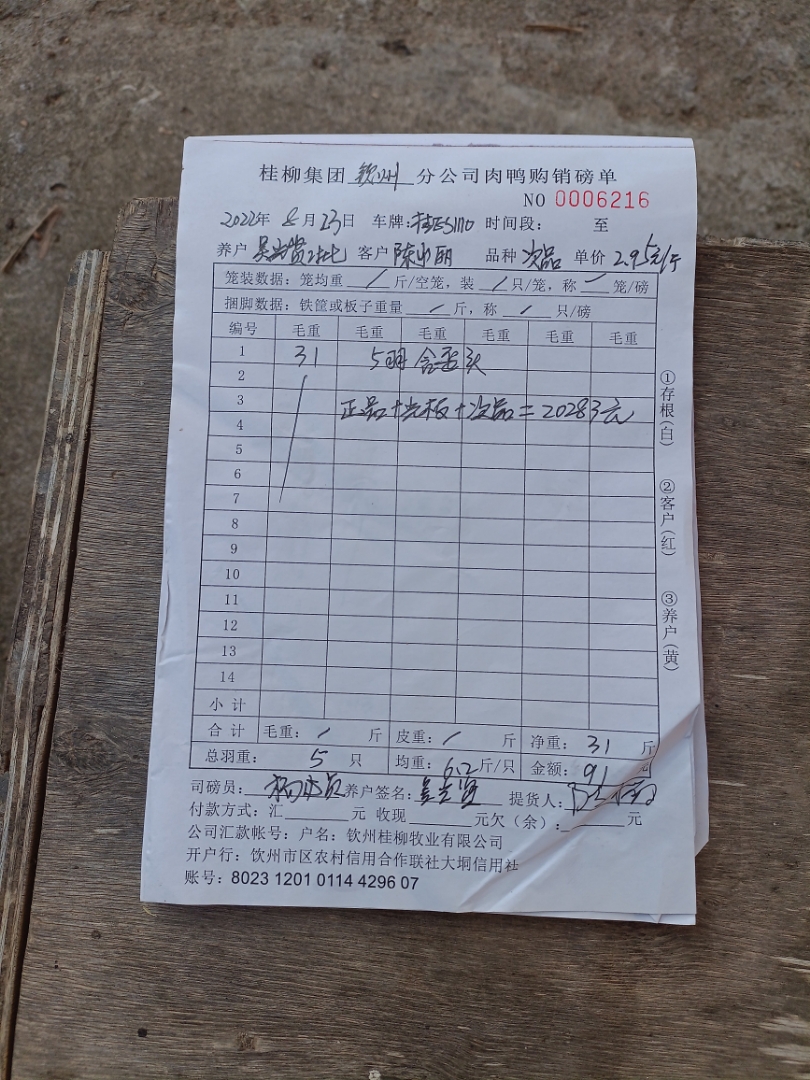 桂柳集团 钦州 分公司肉鸭购销磅单
NO 0006216
2022年 8月23日 车牌: 时间段: 至
养户 客户 品种 次品 单价 2.95元/斤
笼装数据:笼均重 / 斤/空笼,装 / 只/笼,称 / 笼/磅
捆脚数据:铁筐或板子重量 / 斤,称 / 只/磅
编号 毛重 毛重 毛重 毛重 毛重 毛重
1 31 5羽
2
3 正品+光板+次品=20283元
4
5
6
7
8
9
10
11
12
13
14
小计
合计 毛重: / 斤 皮重: / 斤 净重: 31 斤
总羽重: 5 只 均重: 6.2 斤/只 金额: 91 元
司磅员: 养户签名: 提货人:
付款方式:汇 元 收现 元欠(余): 元
公司汇款帐号:户名:钦州桂柳牧业有限公司
开户行:钦州市区农村信用合作联社大垌信用社
账号:8023 1201 0114 4296 07
①存根(白)
②客户(红)
③养户(黄)